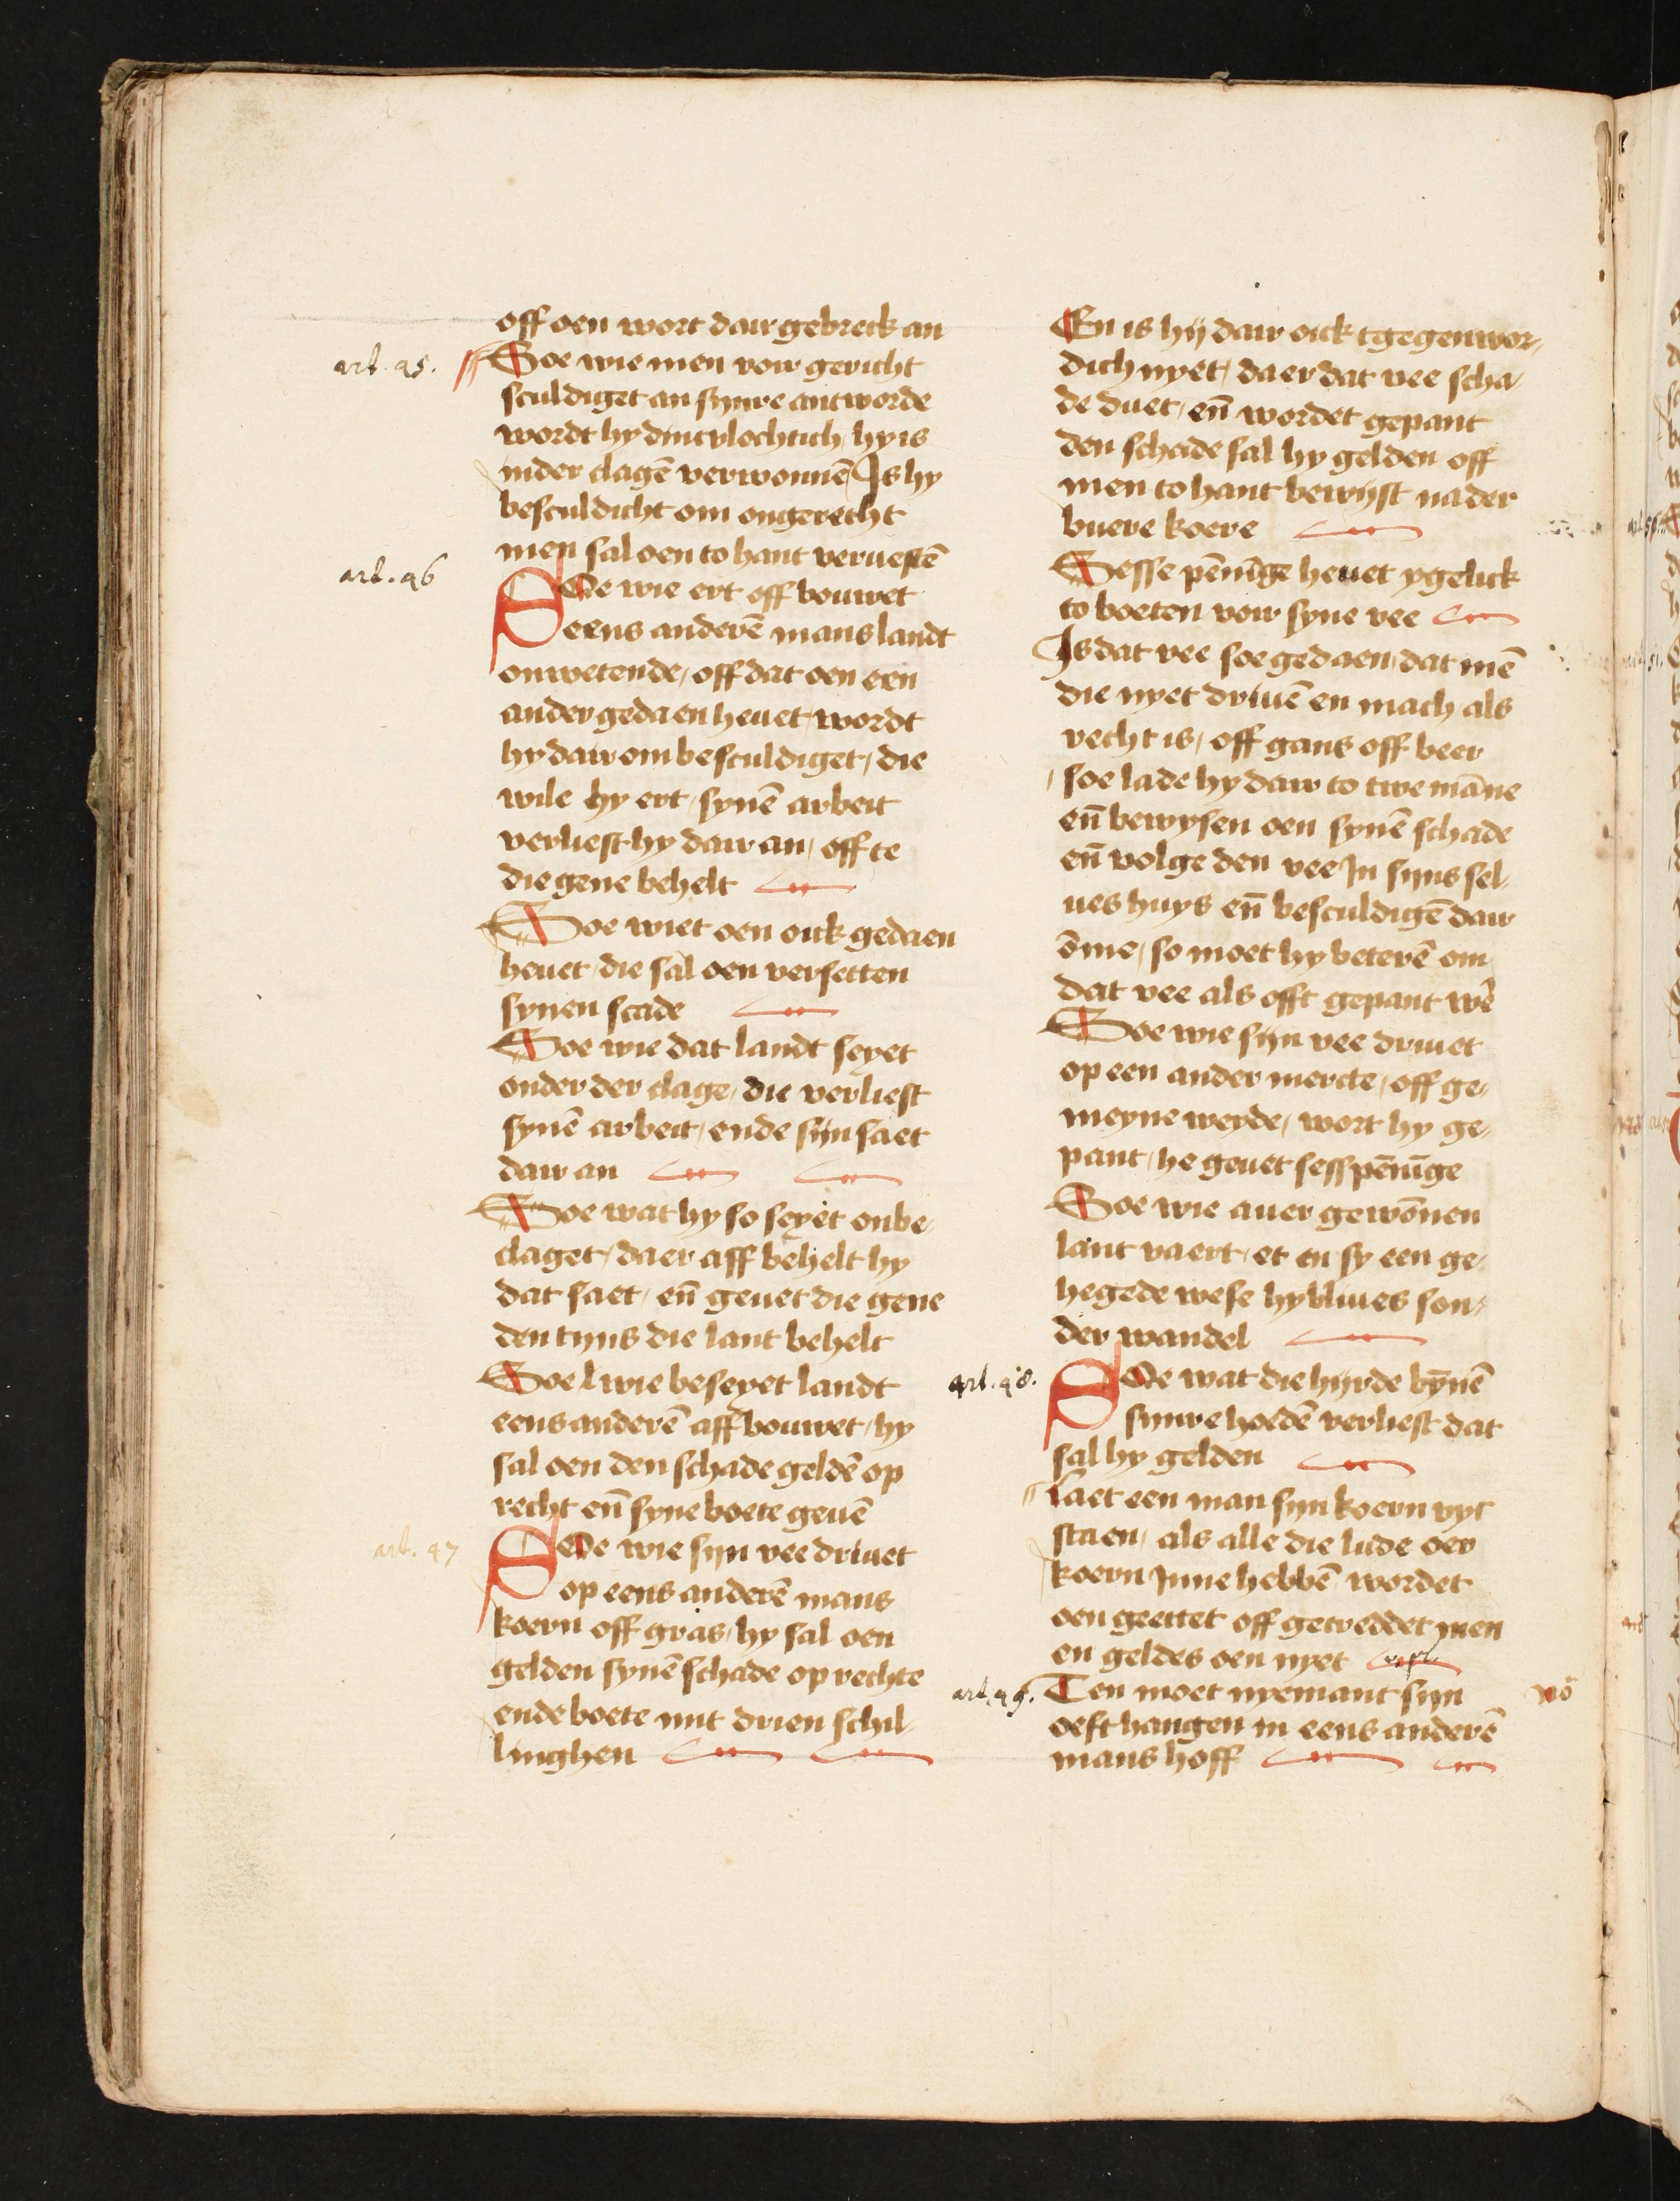 off oen wort dair gebreck an
art. 45. Soe wie men voir gericht
sculdiget an synre antworde
wordt hy dincvlochtich hy is
inder clagē verwonnē Is hy
besculdicht om ongerecht
men sal oen to hant veruestē
art. 46 SOe wie ert off bouwet
eens anderē mans landt
onwetende, off dat oen een
ander gedaen heuet wordt
hy dair om besculdiget, die
wile hy ert, synē arbeit
verliest hy dair an, off te
die gene behelt
Soe wiet oen oick gedaen
heuet die sal oen versetten
synen scade
Soe wie dat landt seyet
onder der clage, die verliest
synē arbeit, ende sijn saet
dair an
Soe wat hy so seyet onbe-
claget, daer aff behelt hy
dat saet, eñ geuet die gene
den tijns die lant behelt
Soe wie beseyet landt
eens anderē aff bouwet, hy
sal oen den schade geldē op
recht eñ syne boete geuē
art. 47 SOe wie sijn vee driuet
op eens anderē mans
koern off gras, hy sal oen
gelden synē schade op rechte
ende boete mit drien schil-
linghen
En is hij dair oick tgegenwor-
dich nyet, daer dat vee scha-
de duet, eñ wordet gepant
den schade sal hy gelden off
men to hant bewijst na der
buere koere
Sesse pēnīge heuet ygelick
to boeten voir syne vee
Is dat vee soe gedaen, dat mē
die nyet driuē en mach als
recht is, off gans off beer
soe lade hy dair to twe māne
eñ bewysen oen synē schade
eñ volge den vee In sijns sel-
ues huys eñ besculdigē dair
ōme, so moet hy beterē om
dat vee als offt gepant wē
Soe wie sijn vee driuet
op een ander mercte, off ge-
meyne weyde, wort hy ge-
pant, he geuet sess pēnīge
Soe wie auer gewōnen
lant vaert, et en sy een ge-
hegede wese hy bliues son-
der wandel
art. 48. SOe wat die hijrde bȳnē
synre hoedē verliest dat
sal hy gelden
Laet een man sijn koern vyt
staen, als alle die lude oer
koern Inne hebbē wordet
oen geettet off getreddet men
en geldes oen nyet
art. 49. Ten moet nyemant sijn
oeft hangen in eens anderē
mans hoff